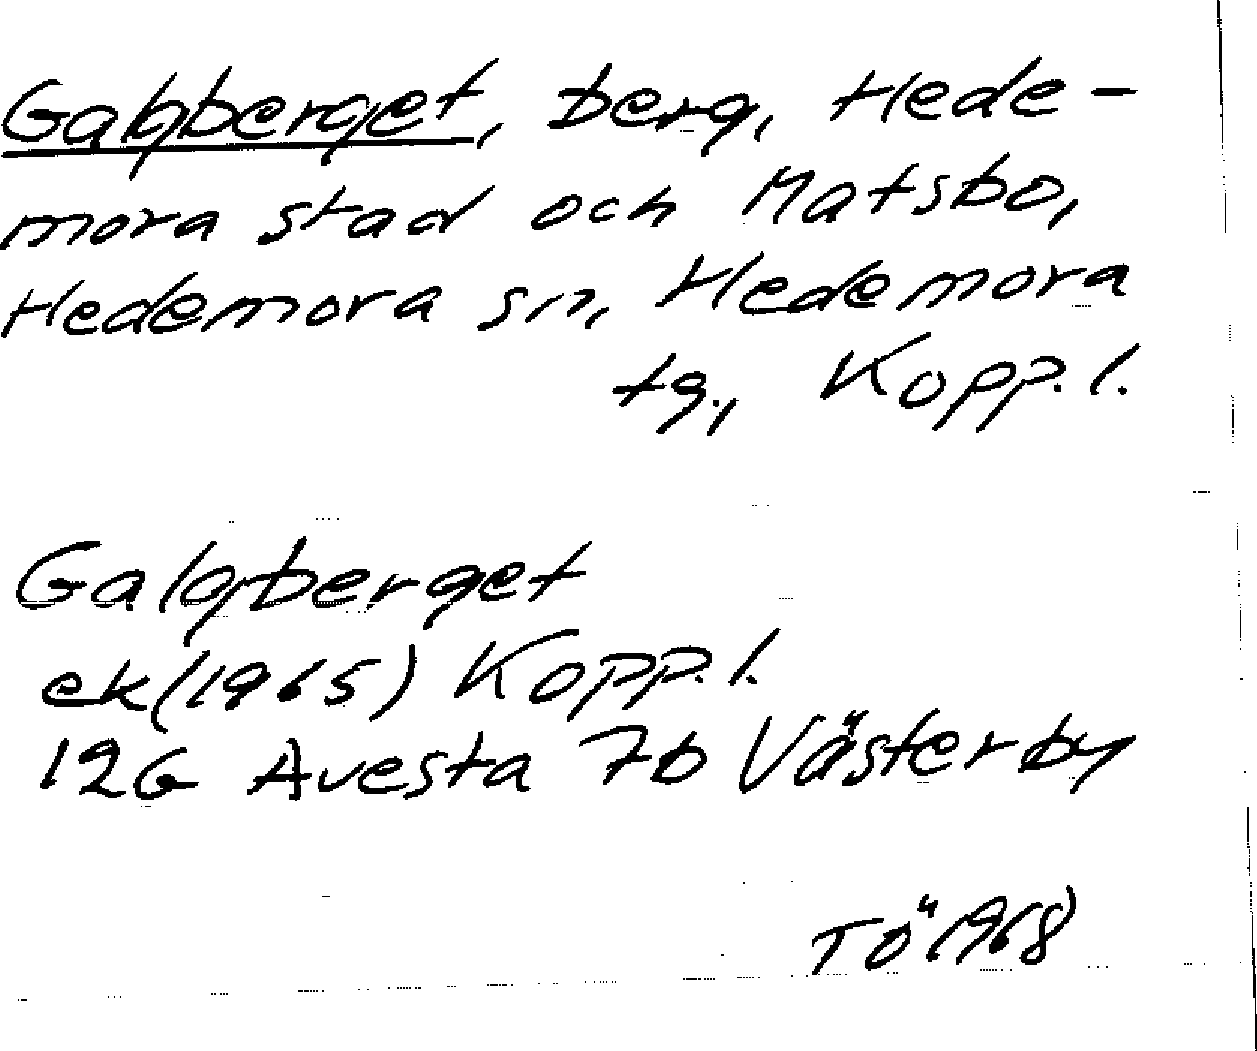 Galgberget, berg, Hede-
mora stad och Matsbo,
Hedemora sn, Hedemora
tg., Kopp. l.
Galgberget
ek (1965) Kopp. l.
12G Avesta 7b Västerby
TÖ 1968